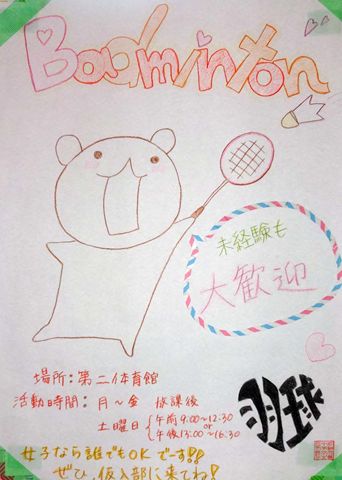 Badminton
未経験も
大歓迎
場所:第二体育館
活動時間:月〜金 放課後
土曜日{午前9:00〜12:30
or
午後13:00〜16:30
羽球
女子なら誰でもOKでーす!!
ぜひ、仮入部に来てね!